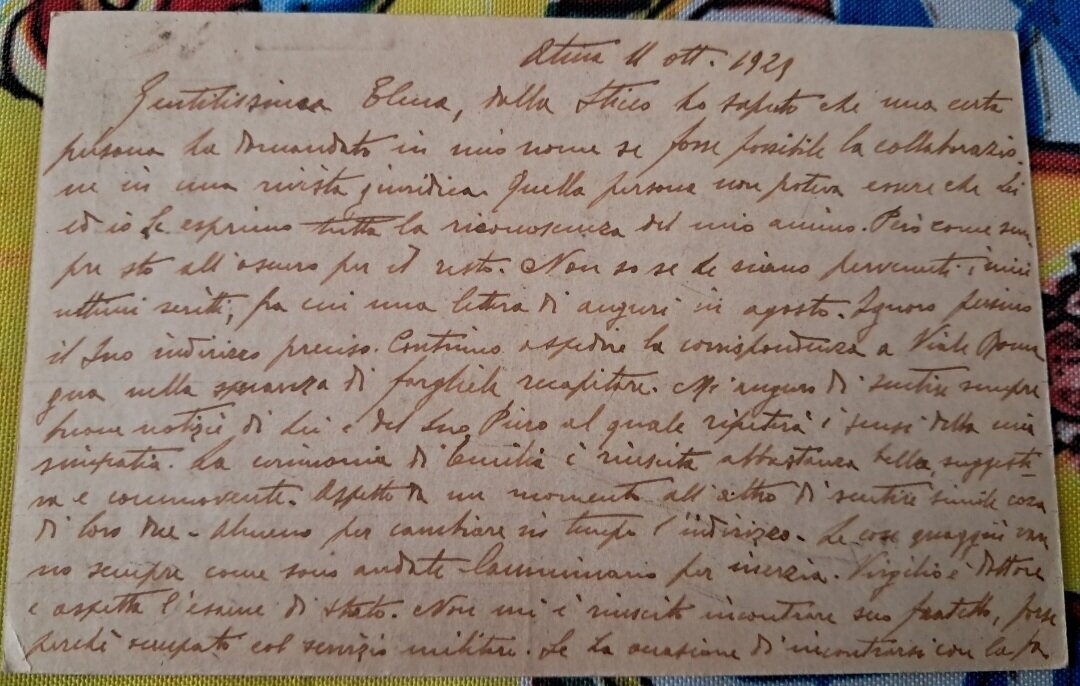 Atina 11 ott. 1929
Gentilissima Elena, dalla Stices ho saputo che una certa
persona ha domandato in mio nome se fosse possibile la collaborazio-
ne in una rivista giuridica. Quella persona non poteva essere che Lei
ed io Le esprimo tutta la riconoscenza del mio animo. Però come sem-
pre sto all'oscuro per il resto. Non so se Le siano pervenuti i miei
ultimi scritti, fra cui una lettera di auguri in agosto. Ignoro persino
il Suo indirizzo preciso. Continuo a spedire la corrispondenza a Viale Roma
gna nella speranza di farghiele recapitare. Mi auguro di sentire sempre
buone notizie di Lei e del Suo Piero al quale ripeterà i sensi della mia
simpatia. La cerimonia di Emilia è riuscita abbastanza bella, suggesti-
va e commovente. Aspetto da un momento all'altro di sentire simile cosa
di loro due - Almeno per cambiare in tempo l'indirizzo. Le cose quaggiù van
no sempre come sono andate. Camminano per inerzia. Virgilio è dottore
e aspetta l'esame di Stato. Non mi è riuscito incontrare suo fratello, forse
perchè occupato col servizio militare. Se ha occasione di incontrarsi con la fa